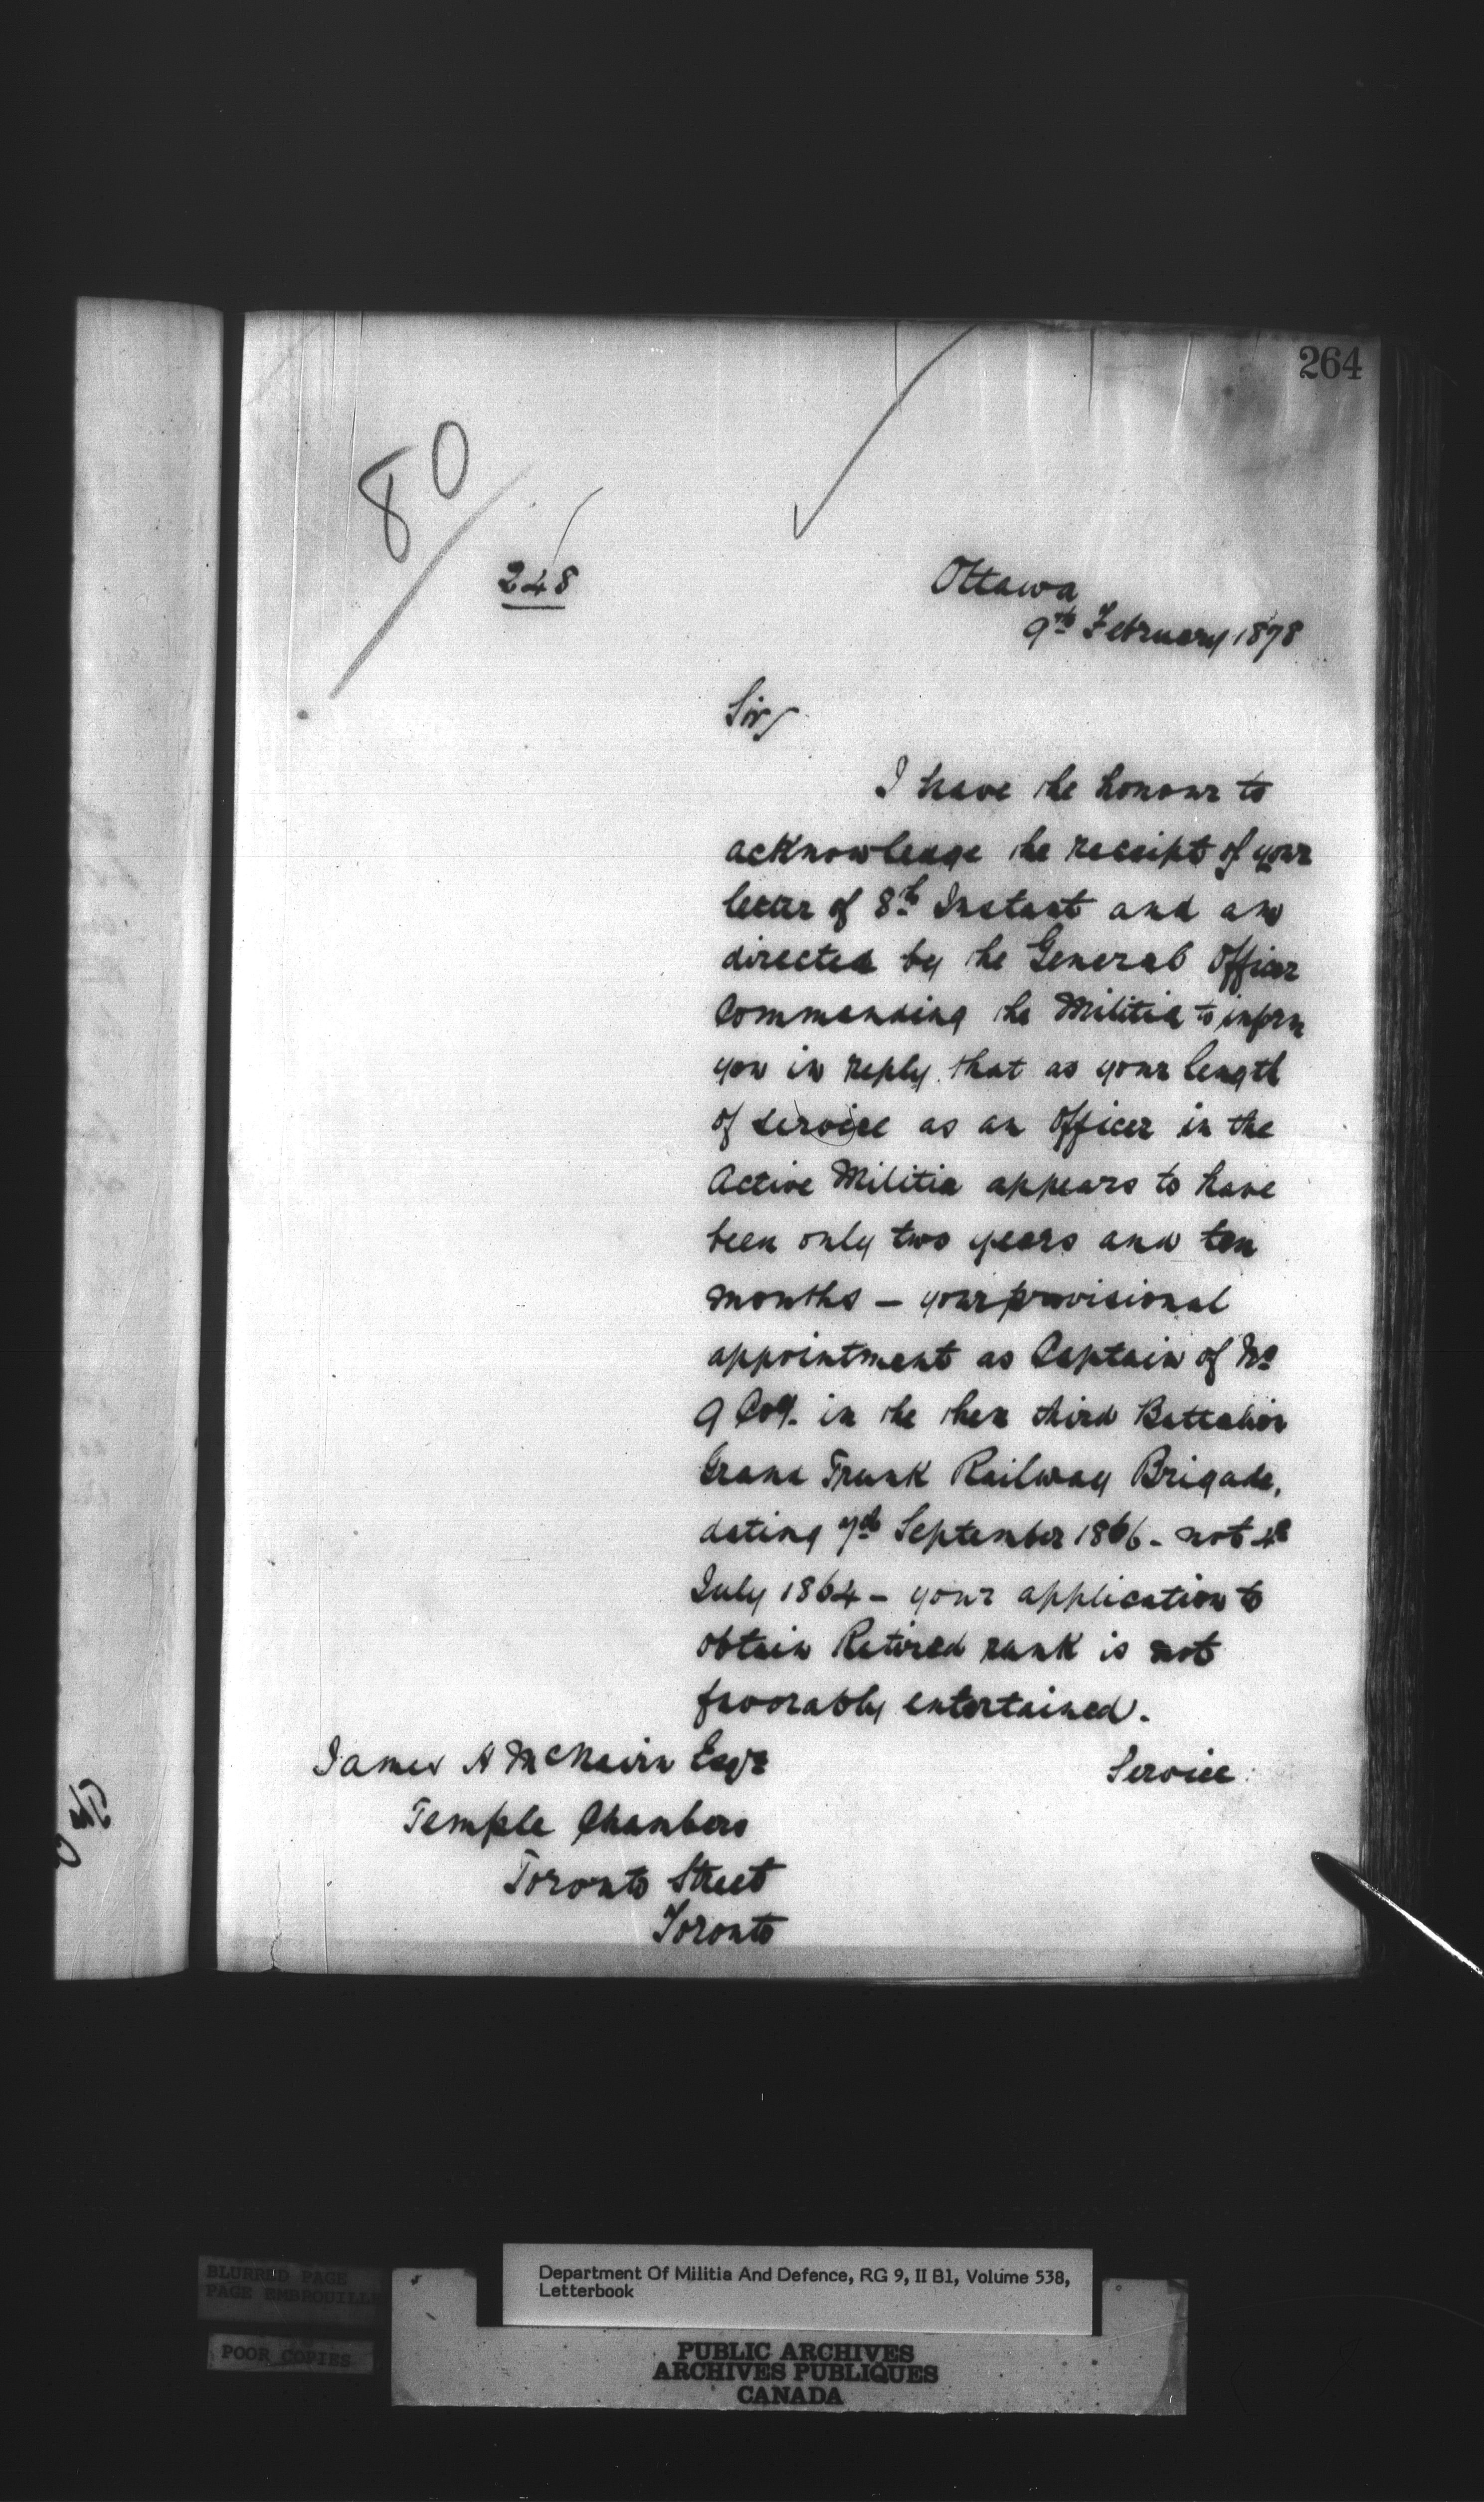 264
80
248
Ottawa
9th February 1878
Sir,
I have the honour to
acknowledge the receipt of your
letter of 8th Instant and am
directed by the General Officer
Commanding the Militia to inform
you in reply that as your length
of service as an Officer in the
Active Militia appears to have
been only two years and ten
months – your provisional
appointment as Captain of No
9 Coy. in the then third Battalion
Grand Trunk Railway Brigade,
dating 7th September 1866 – not
July 1864 – your application to
obtain Retired rank is not
favorably entertained.
Service
James A McNairn Esqre
Temple Chambers
Toronto Street
Toronto
BLURRED PAGE
PAGE EMBROUILLE
POOR COPIES
Department Of Militia And Defence, RG 9, II B1, Volume 538,
Letterbook
PUBLIC ARCHIVES
ARCHIVES PUBLIQUES
CANADA